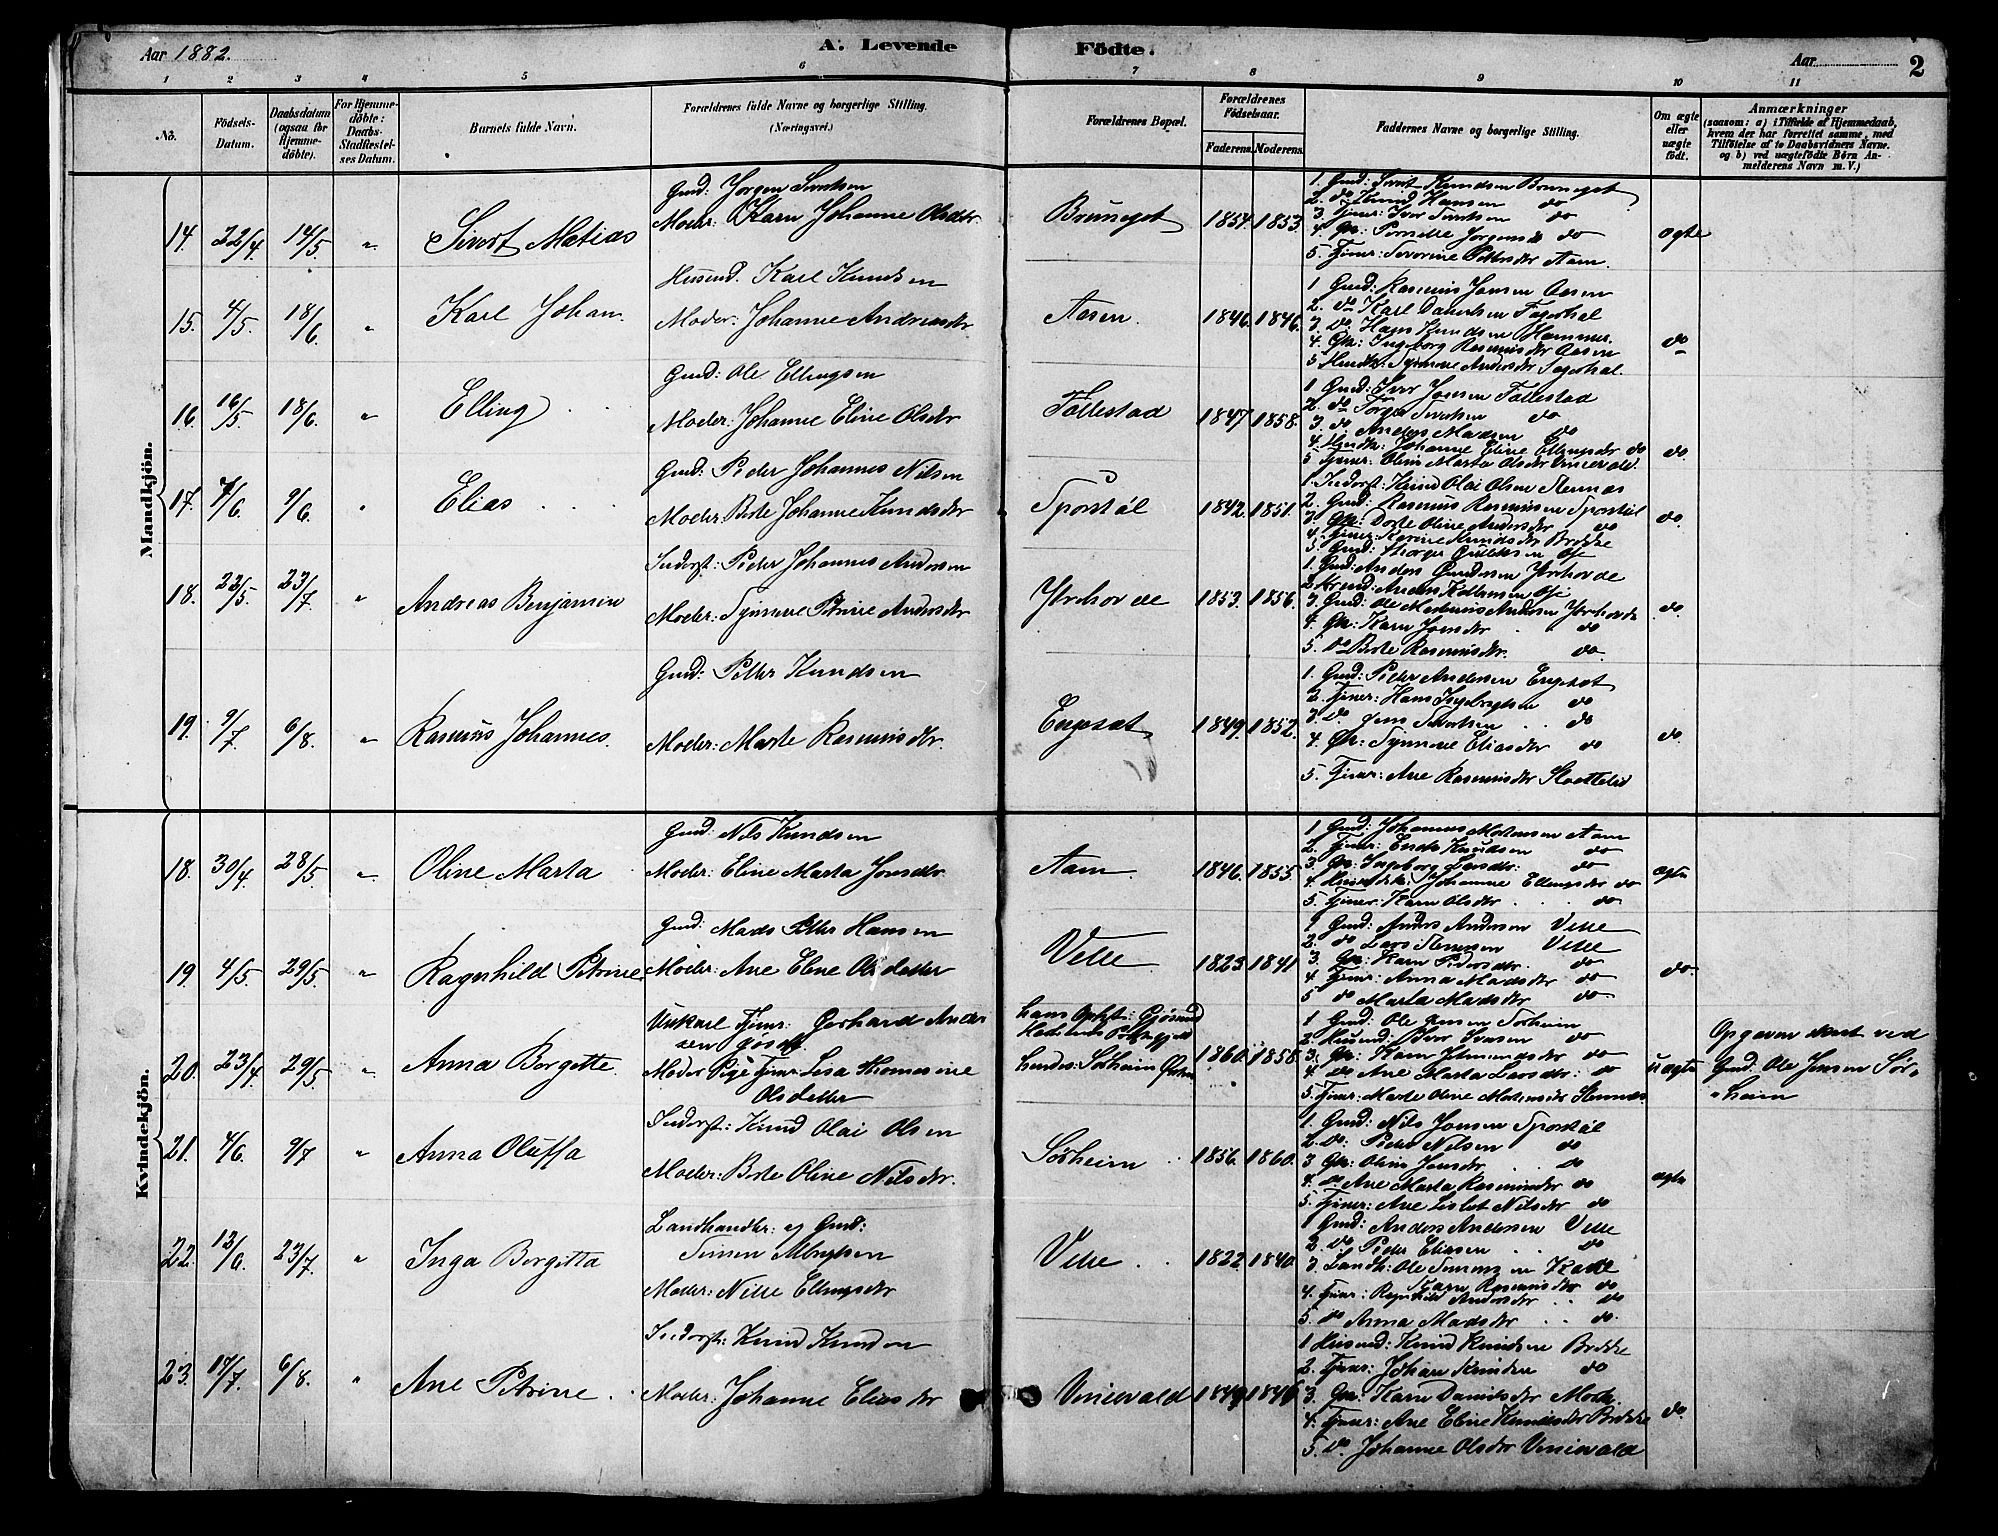 Aar 1882.
A. Levende Födte.
Aar 2
1 2 3 4 5 6 7 8 9 10 11
No.
Födsels-Datum.
Daabsdatum (ogsaa for Hjemmedöbte).
For Hjemmedöbte: Daabs-Stadfæstelses Datum.
Barnets fulde Navn.
Forældrenes fulde Navne og borgerlige Stilling. (Næringsvei.)
Forældrenes Bopæl.
Forældrenes Födselsaar.
Faderens. Moderens.
Faddernes Navne og borgerlige Stilling.
Om ægte eller uægte födt.
Anmærkninger
(saasom: a) i Tilfælde af Hjemmedaab, hvem der har forrettet samme, med Tilföielse af to Daabsvidners Navne. og b) ved uægtefödte Börn Anmelderens Navn m. V.)
Mandkjön.
14. 22/4 14/5 " Sivert Matias
Gmd: Jorgen Sivertsen
Moder: Karn Johanne Olsdtr
Bruneset 1854. 1853.
1. Gmd: Sivert Knudsen Bruneset
2. do Knud Hansen do
3. Tjener: Iver Sivertsen do
4. Gk: Pernille Jorgensdr do
5. Tjener: Severine Pettersdtr Aam.
ægte
15. 4/5 18/6. " Karl Johan.
Husmd. Karl Knudsen
Moder: Johanne Andreasdtr
Aasen. 1846. 1846.
1 Gmd: Rasmus Jonsen Aasen
2. do Karl Danielsen Fagerhol
3. do. Hans Knudsen Hammer.
4. Gk: Ingeborg Rasmusdtr Aasen
5 Husmdk: Synneve Andersdtr Fagerhol.
do
16. 16/5 18/6. " Elling
Gmd: Ole Ellingsen
Moder: Johanne Eline Olsdtr
Follestad 1847. 1858.
1 Gmd: Iver Jonsen Follestad
2. do Torger Sivertsen do
3. do. Anders Madsen do
4. Husmdk: Johanne Eline Ellingsdtr do
5 Tjener: Eline Marta Olsdtr Vinievold.
do.
17. 4/6 9/6. " Elias
Gmd: Peder Johannes Nilsen
Moder: Berte Johanne Knudsdtr
Sporstøl 1842. 1851.
1. Inderst: Knud Olai Olsen Stennes
2. Gmd: Rasmus Rasmussen Sporstøl
3. Gk: Dorte Oline Andersdtr do
4. Tjener: Karine Knudsdtr Brekke
5. Gmd: Thorger Gulliksen Ose
do.
18. 23/5. 23/7 " Andreas Benjamin
Inderst: Peder Johannes Andersen
Moder: Synneve Petrine Andersdtr
Yrhovde 1853. 1856.
1. Gmd: Anders Gundersen Yrhovde
3. Gmd: Ole Martinus Andersen Yrhovde
4. Gk: Karn Jonsdtr do
5. do Berte Rasmusdtr. do.
do.
19. 9/7 6/8. " Rasmus Johannes.
Gmd: Petter Knudsen
Moder: Marte Rasmusdtr.
Engeset 1849. 1852.
1. Gmd: Peder Andersen Engeset
2. Tjener: Hans Ingebrigtsen do
3. do Jens Sivertsen do
4. Gk: Synneve Eliasdtr do
5. Tjener: Ane Rasmusdtr Slettelid
do
Kvindekjön.
18. 30/4 28/5. " Oline Marta
Gmd: Nils Knudsen
Moder: Eline Marta Jonsdtr
Aam 1846. 1855.
1 Gmd: Johannes Mortensen Aam
2. Tjener: Endre Knudsen do
3. Gk: Ingeborg Larsdtr. do
4. Husmdsk: Johanne Ellingsdtr do
5. Tjener: Karn Olsdtr. do.
ægte
19. 4/5 29/5. " Ragnhild Petrine
Gmd: Mads Petter Hansen
Moder: Ane Eline Olsdatter
Velle 1823. 1841
1 Gmd: Anders Andersen Velle
2. do Lars Stensen Velle
3. Gk: Karn Pedersdtr. do
4. Tjener: Anna Madsdtr do
5 do Marta Madsdtr do
do.
20. 23/4 29/5. " Anna Bergitte.
Unkarl Tjener: Gerhard Andersen Gjøsd
Moder Pige Tjener Lesa Thomasine Olsdatter
hans Opht: Gjøsund
hendes: Sørheim Ørsten
1860. 1858.
1 Gmd: Ole Jensen Sørheim
2. Husmd: Iver Ivarsen do
4. do Ane Marta Larsdtr: do
5. Tjener: Marte Oline Mortensdtr Stennes
uægte
Opgaven skeet ved Gmd: Ole Jensen Sørheim
21. 4/6. 9/7 " Anna Oluffa
Inderst: Knud Olai Olsen
Moder: Berte Oline Nilsdtr.
Sørheim 1856. 1860.
1 Gmd: Nils Jonsen Sporstøl
2. do: Peder Nilsen do
3 Gk: Oline Jonsdtr. do
4. do Ane Marta Rasmusdtr do
5. Tjener: Ane Lislot Nilsdtr do
ægte
22. 13/6. 23/7. " Inga Bergitta
Landhandler og Gmd: Simen Albrigtsen
Moder: Nille Ellingsdtr
Velle 1822. 1840.
1 Gmd: Anders Andersen Velle
2. do. Peder Eliasen do
4. Tjener: Ragnhild Andersdtr do
5. do Anna Madsdtr do.
23. 17/7 6/8. " Ane Petrine
Inderst: Knud Knudsen
Moder: Johanne Eliasdtr
Vinievold 1849 1846.
1 Husmd: Knud Knudsen Brekke
2. Tjener: Johan Knudsen do
3. Gk: Karn Danielsdtr Mork.
4. Tjener: Ane Eline Knudsdtr Brekke
5. do. Johanne Olsdtr Vinievold
do.